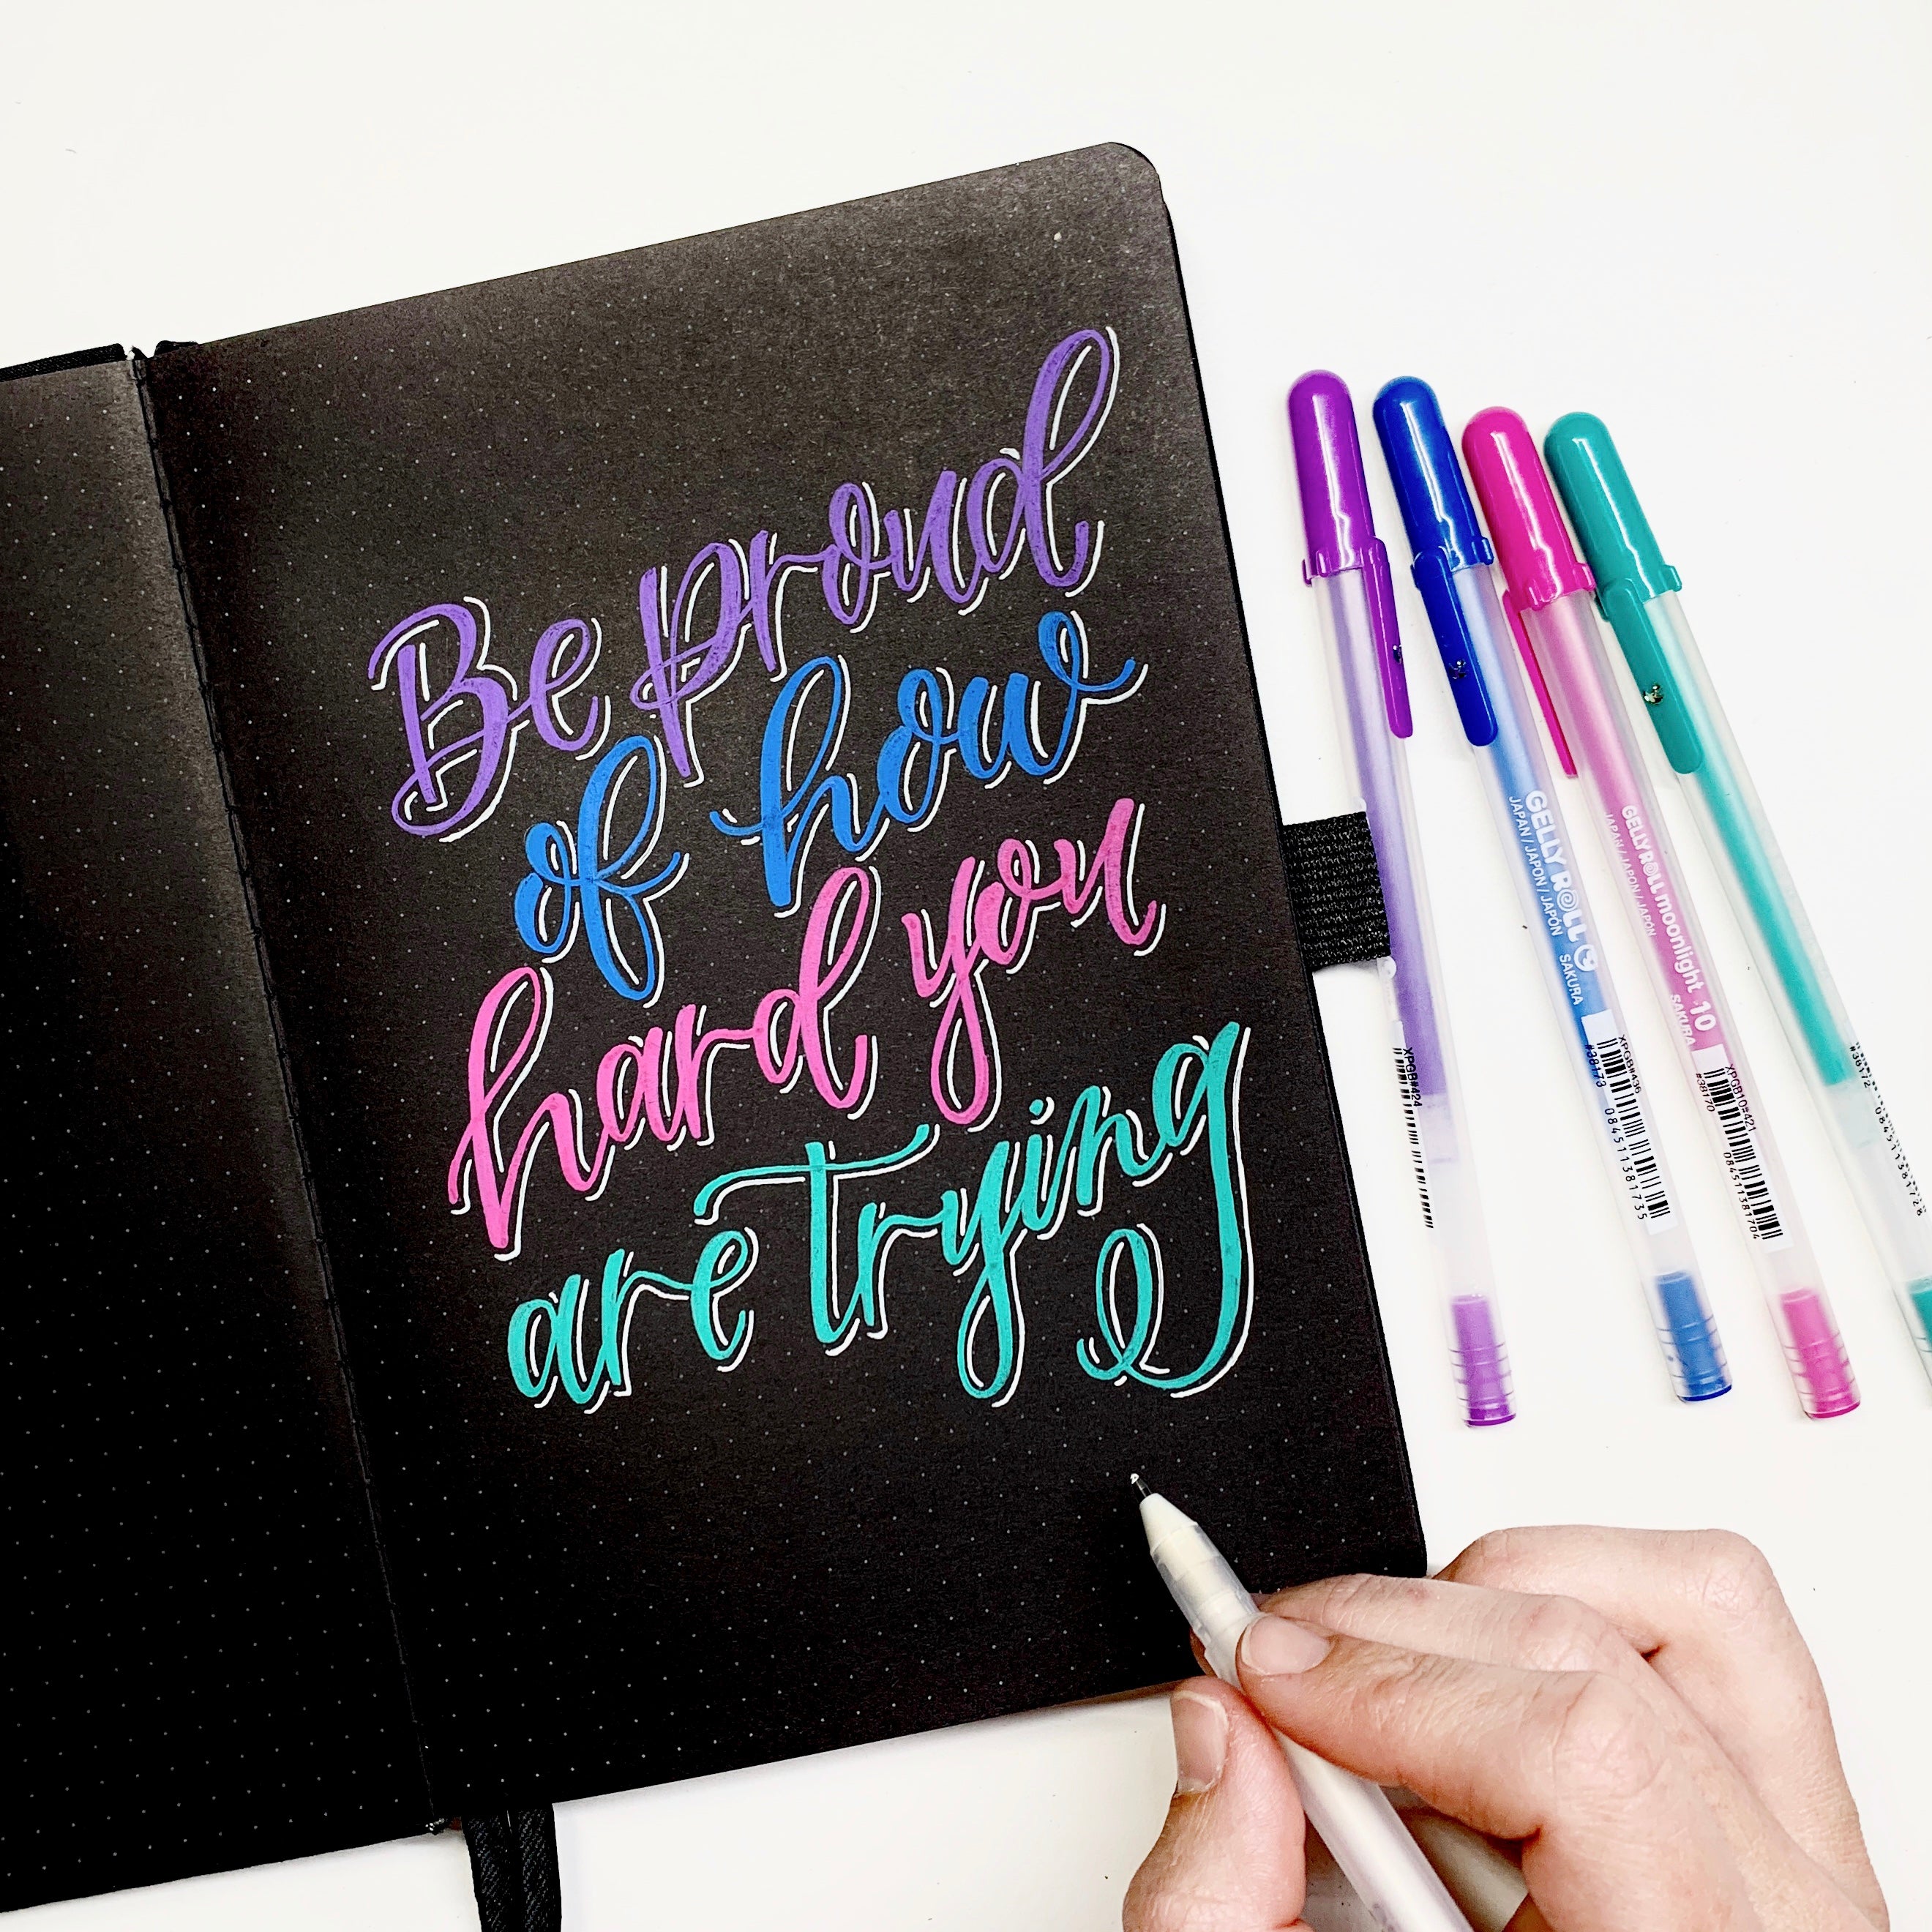 Be proud
of how
hard you
are trying
XPGB#424
GELLY ROLL
JAPAN / JAPON / JAPÓN SAKURA
XPGB#436
#38173
084511381735
GELLY ROLL moonlight 10
JAPAN / JAPON / JAPÓN SAKURA
XPGB10#421
#38170
084511381704
#38172
084511381728